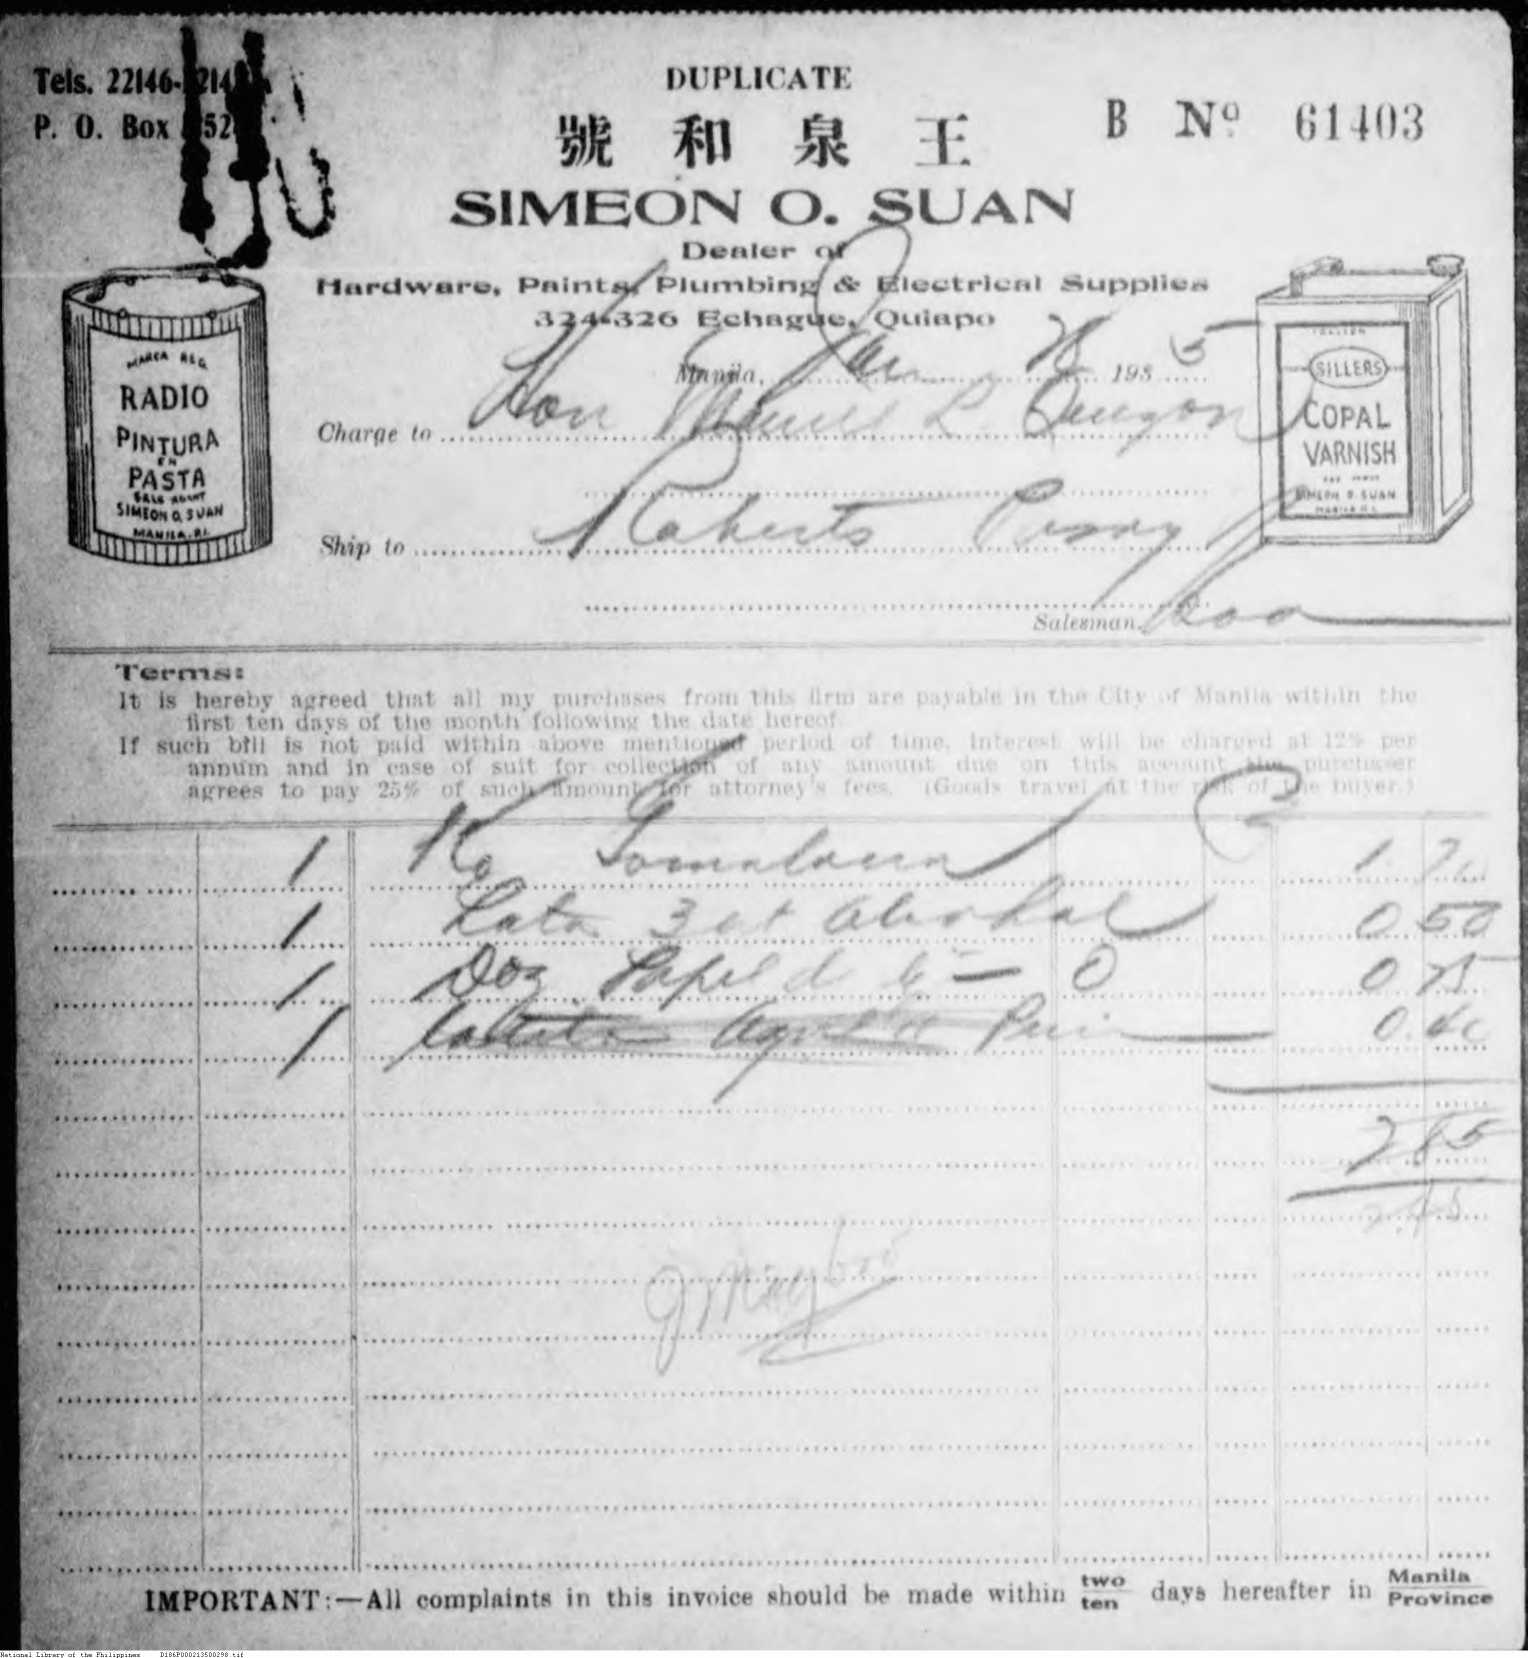 Tels. 22146-
P. O. Box
DUPLICATE
B Nº 61403
號 和 泉 王
SIMEON O. SUAN
Dealer of
Hardware, Paints, Plumbing & Electrical Supplies
324-326 Echague, Quiapo
MARCA REG
RADIO
PINTURA
EN
PASTA
SALE AGENT
SIMEON O. SUAN
MANILA. P.I.
SILLERS
COPAL
VARNISH
SIMEON O. SUAN
MANILA P.I.
Manila, 193 5
Charge to Hon L. Quezon
Ship to Roberts Pasay
Salesman.
Terms:
It is hereby agreed that all my purchases from this firm are payable in the City of Manila within the
first ten days of the month following the date hereof.
If such bill is not paid within above mentioned period of time, interest will be charged at 12% per
annum and in case of suit for collection of any amount due on this account the purchaser
agrees to pay 25% of such amount for attorney's fees. (Goods travel at the risk of the buyer.)
1 Ko Gomalaca 1.20
1 Lata Alcohol 0 50
1 Doz Papel de - 0 0 75
1 0.40
2 85
IMPORTANT:—All complaints in this invoice should be made within two/ten days hereafter in Manila/Province
National Library of the Philippines D186P000213500298.tif